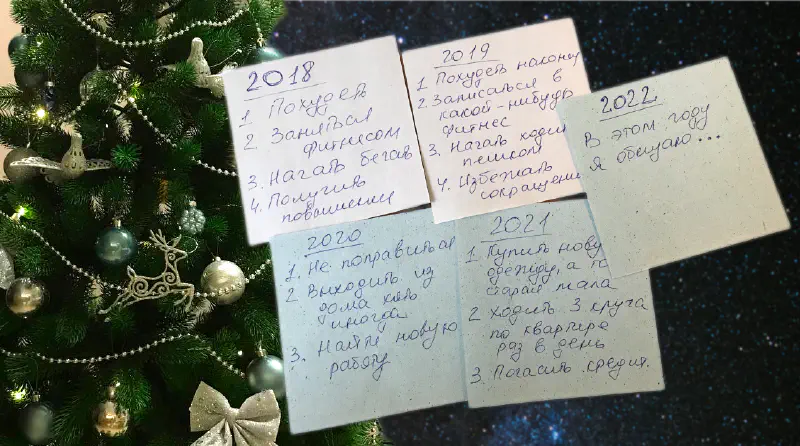 2018
1 Похудеть
2 Заняться
фитнесом
3. Начать бегать
4. Получить
повышение
2019
1 Похудеть наконец
2 Записаться в
какой-нибудь
фитнес
3. Начать ходить
пешком
4. Избежать
сокращения
2020
1. Не поправиться
2 Выходить из
дома хоть
иногда
3. Найти новую
работу
2021
1 Купить новую
одежду, а то
старая мала
2 Ходить 3 круга
по квартире
раз в день
3. Погасить кредит.
2022
В этом году
я обещаю...